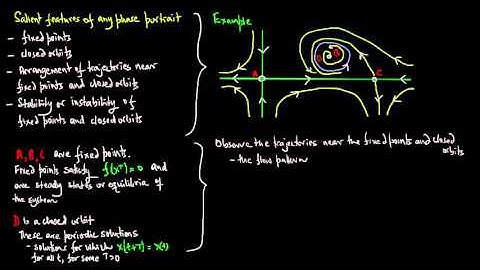 Salient features of any phase portrait
- fixed points
- closed orbits
- Arrangement of trajectories near
fixed points and closed orbits
- Stability or instability of
fixed points and closed orbits
A, B, C are fixed points.
Fixed points satisfy f(x*) = 0 and
are steady states or equilibria of
the system
D is a closed orbit
These are periodic solutions
- solutions for which x(t+T) = x(t)
for all t, for some T>0
Example
D B
A C
Observe the trajectories near the fixed points and closed
orbits
- the flow pattern